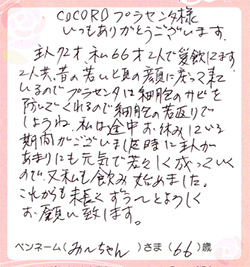 COCOROプラセンタ様
いつもありがとうございます。
主人72才、私66才2人で愛飲してます
2人共、昔の若いときの顔に戻って来て
いるのでプラセンタは細胞のサビを
防いでくれるので細胞の若返りで
しょうね、私は途中お休みしている
期間がございまし時に主人が
あまりにも元気で若々しく成っていく
ので、又私も飲み始めました。
これからも末長くずうーとよろしく
お願い致します。
ペンネーム(みーちゃん)さま(66)歳